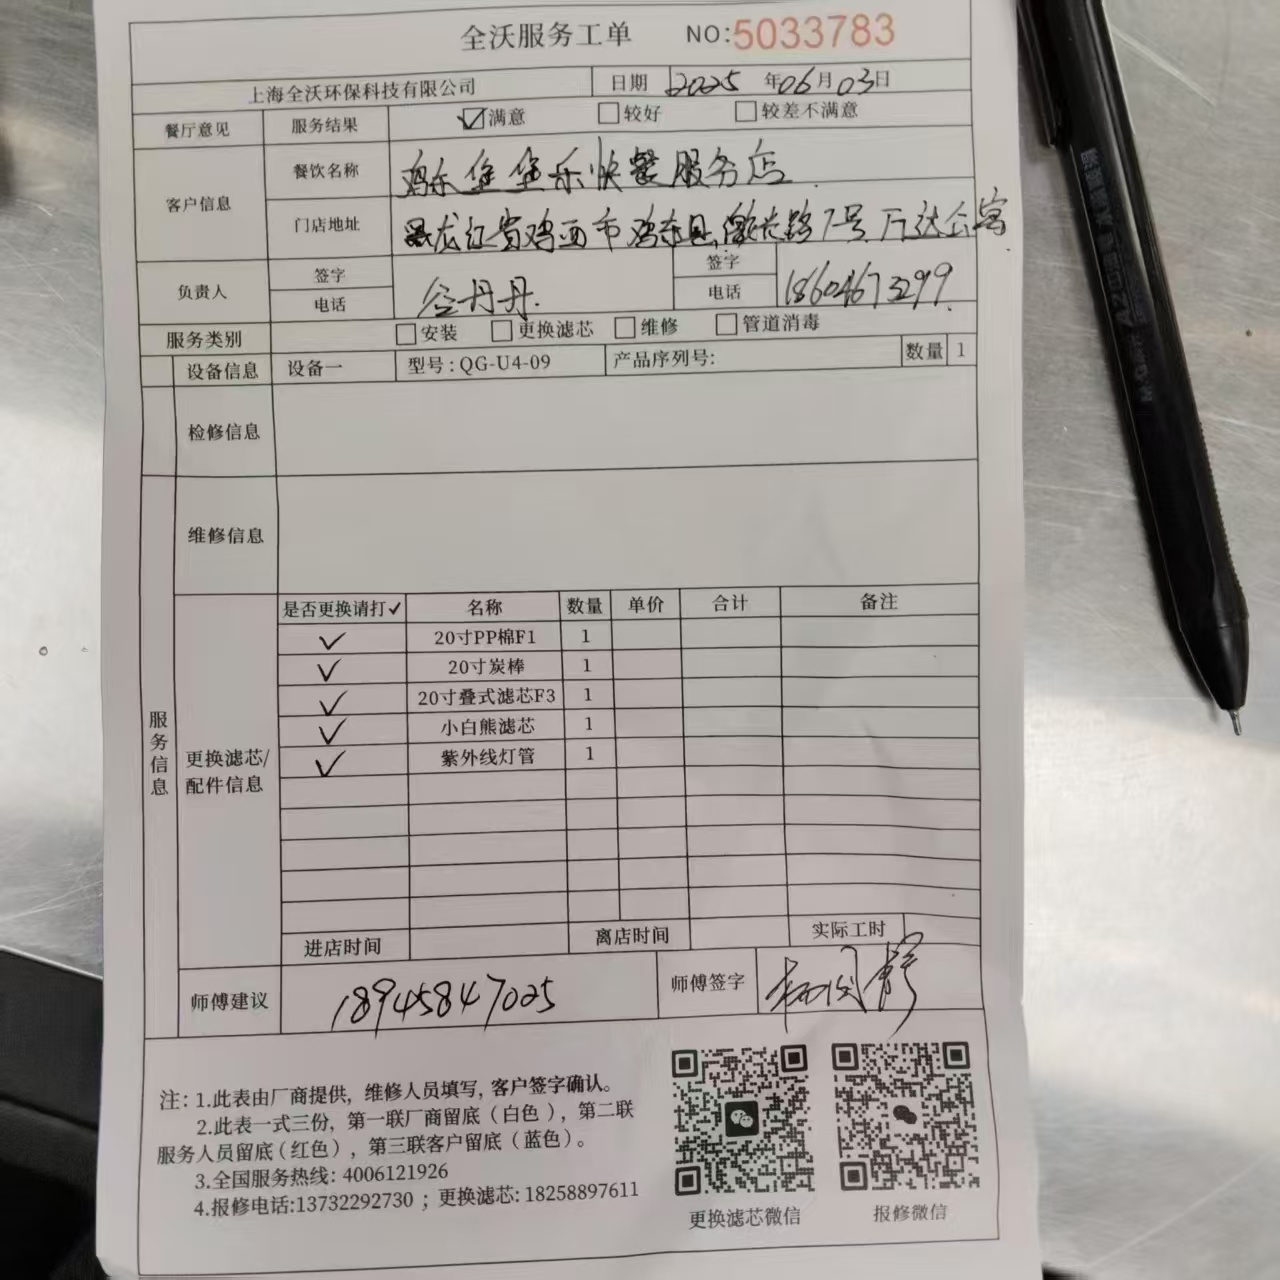 全沃服务工单 NO:5033783
上海全沃环保科技有限公司 日期 2025 年 06 月 03 日
餐厅意见 服务结果 满意 较好 较差不满意
客户信息 餐饮名称 鸡东堡堡乐快餐服务店
门店地址 黑龙江省鸡西市鸡东县 路1号万达公寓
负责人 签字 谷丹丹 签字
电话 电话 18604673299
服务类别 安装 更换滤芯 维修 管道消毒
设备信息 设备一 型号:QG-U4-09 产品序列号: 数量 1
检修信息
维修信息
服务信息
更换滤芯/
配件信息
是否更换请打✓ 名称 数量 单价 合计 备注
✓ 20寸PP棉F1 1
✓ 20寸炭棒 1
✓ 20寸叠式滤芯F3 1
✓ 小白熊滤芯 1
✓ 紫外线灯管 1
进店时间 离店时间 实际工时
师傅建议 18945847025 师傅签字
注: 1.此表由厂商提供, 维修人员填写, 客户签字确认。
2.此表一式三份, 第一联厂商留底(白色), 第二联
服务人员留底(红色), 第三联客户留底(蓝色)。
3.全国服务热线: 4006121926
4.报修电话:13732292730 ; 更换滤芯: 18258897611
更换滤芯微信 报修微信